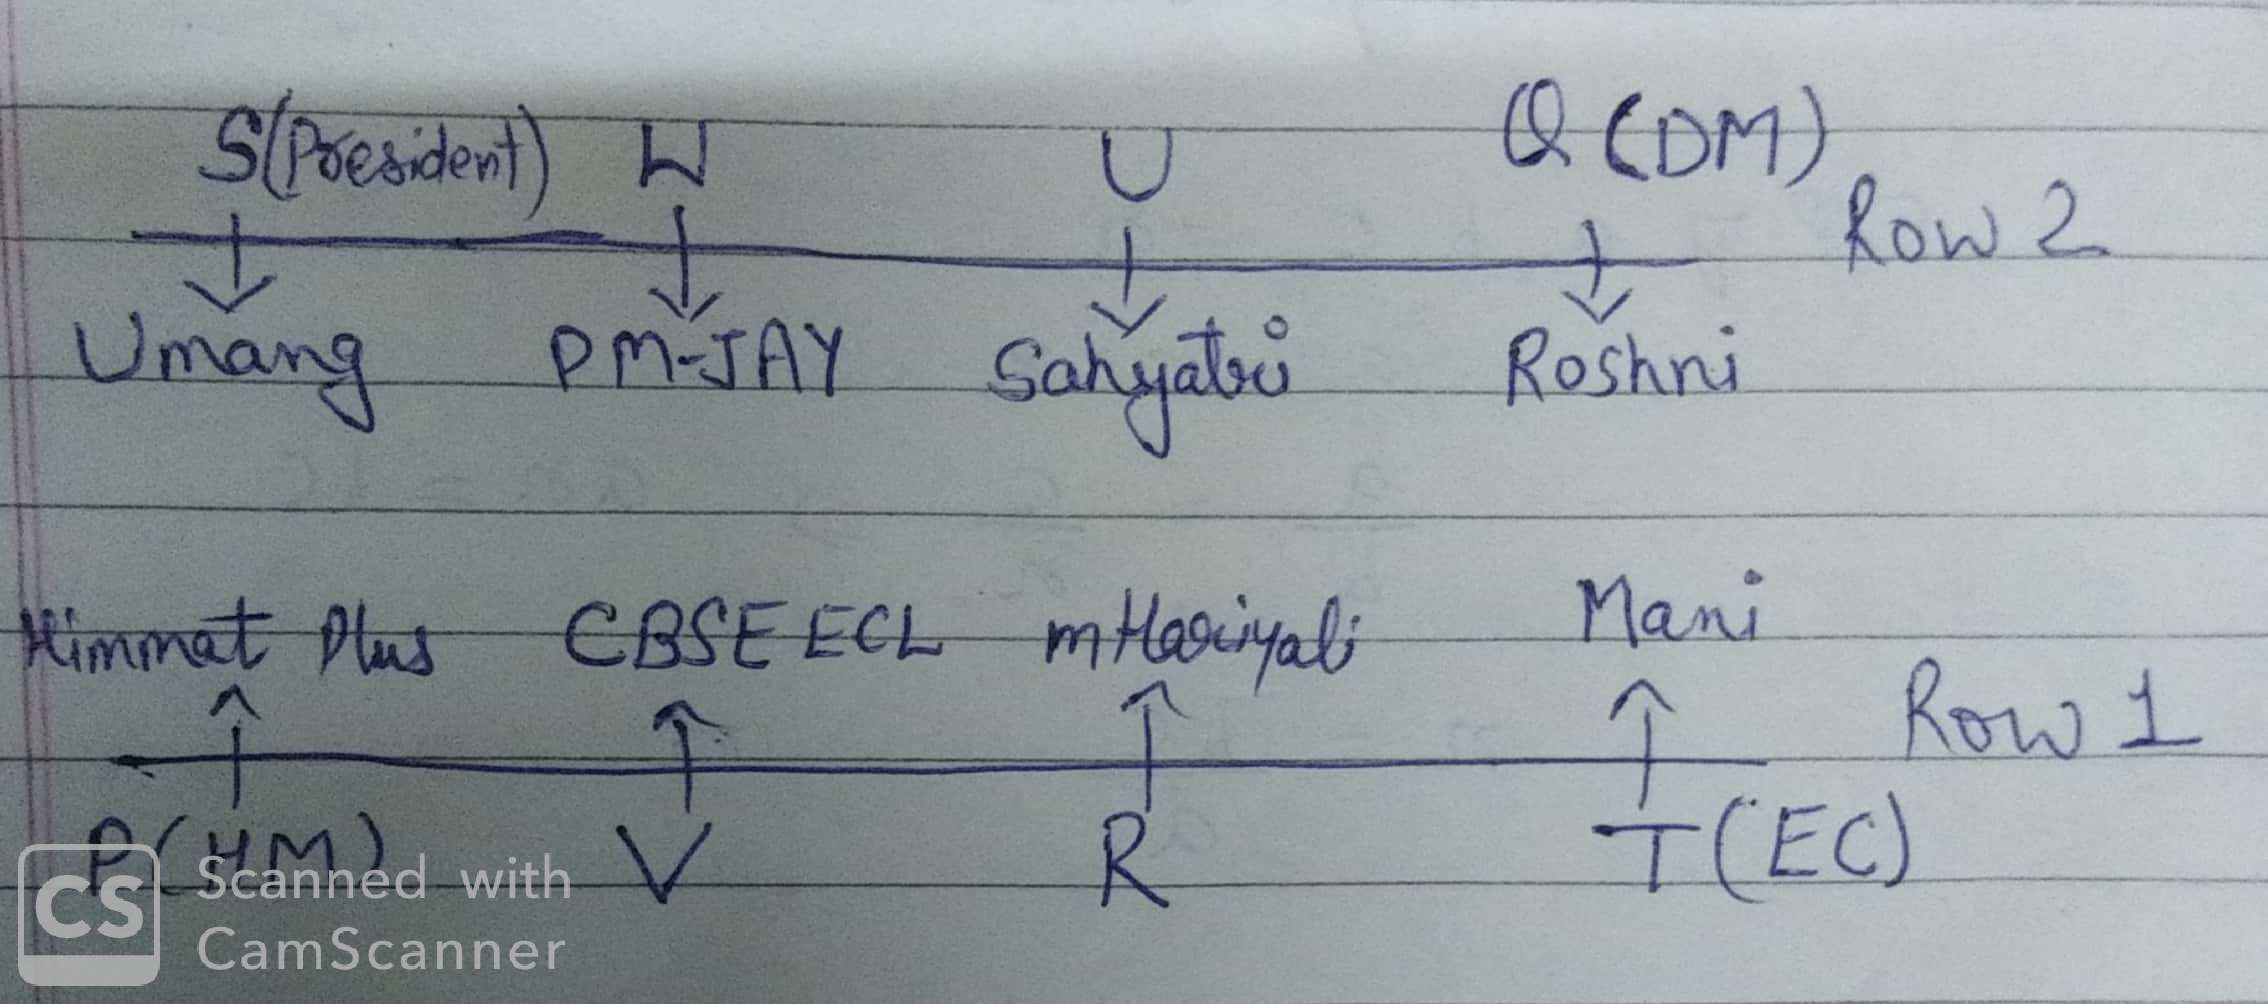 S(President) W U Q (DM)
Row 2
Umang PM-JAY Sahyatri Roshni
Himmat Plus CBSE ECL mHariyali Mani
Row 1
P(HM) V R T(EC)
CS Scanned with
CamScanner